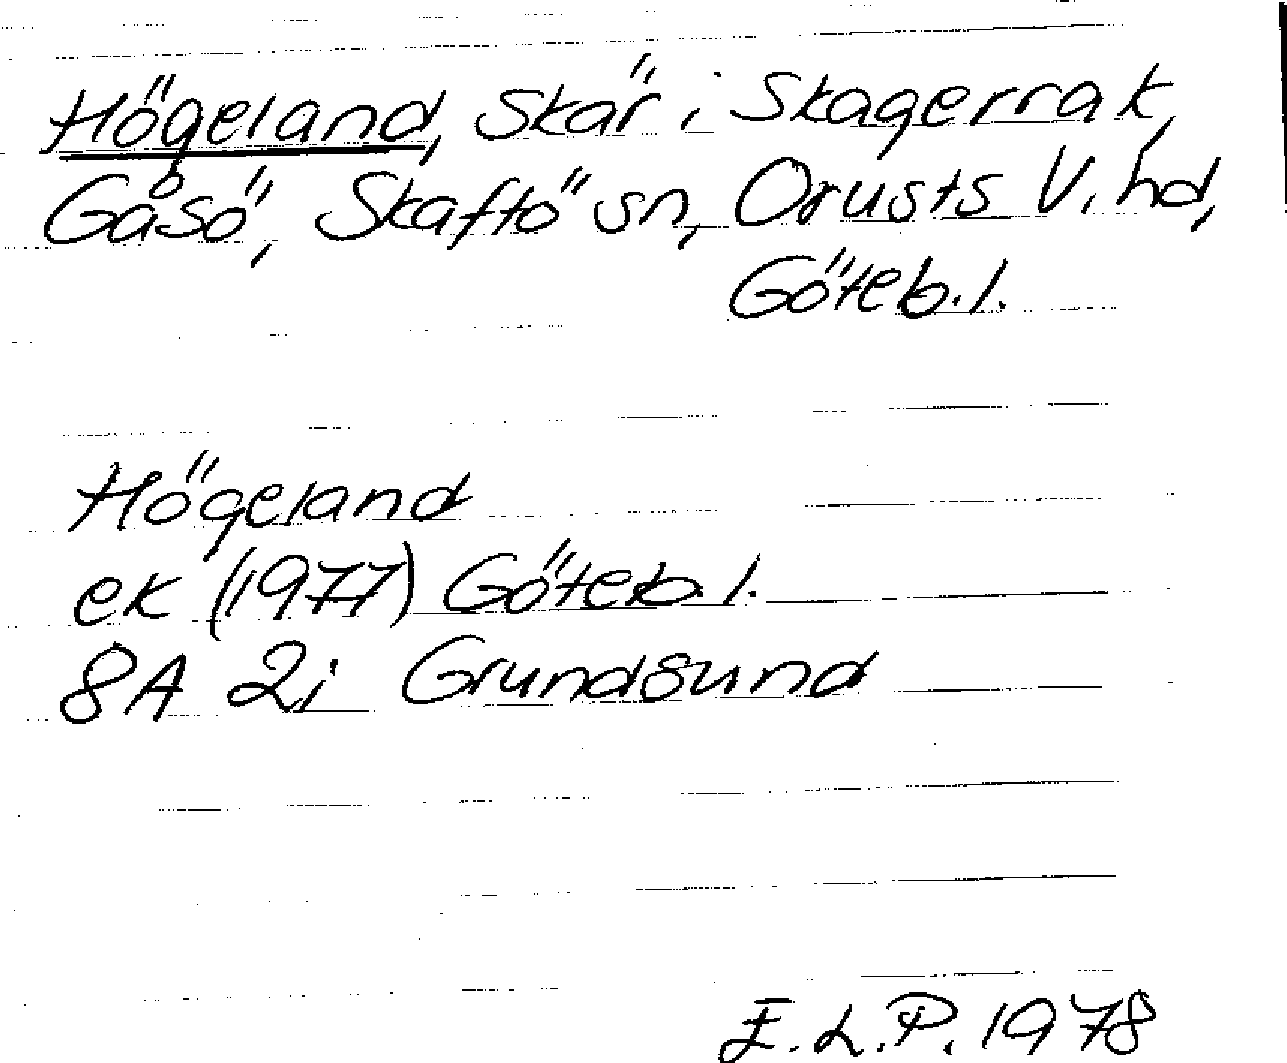 Högeland, Skär i Skagerrak,
Gåsö, Skaftö sn, Orusts V. hd,
Göteb. l.
Högeland
ek (1977) Göteb. l.
8A 2i Grundsund
E.L.P. 1978